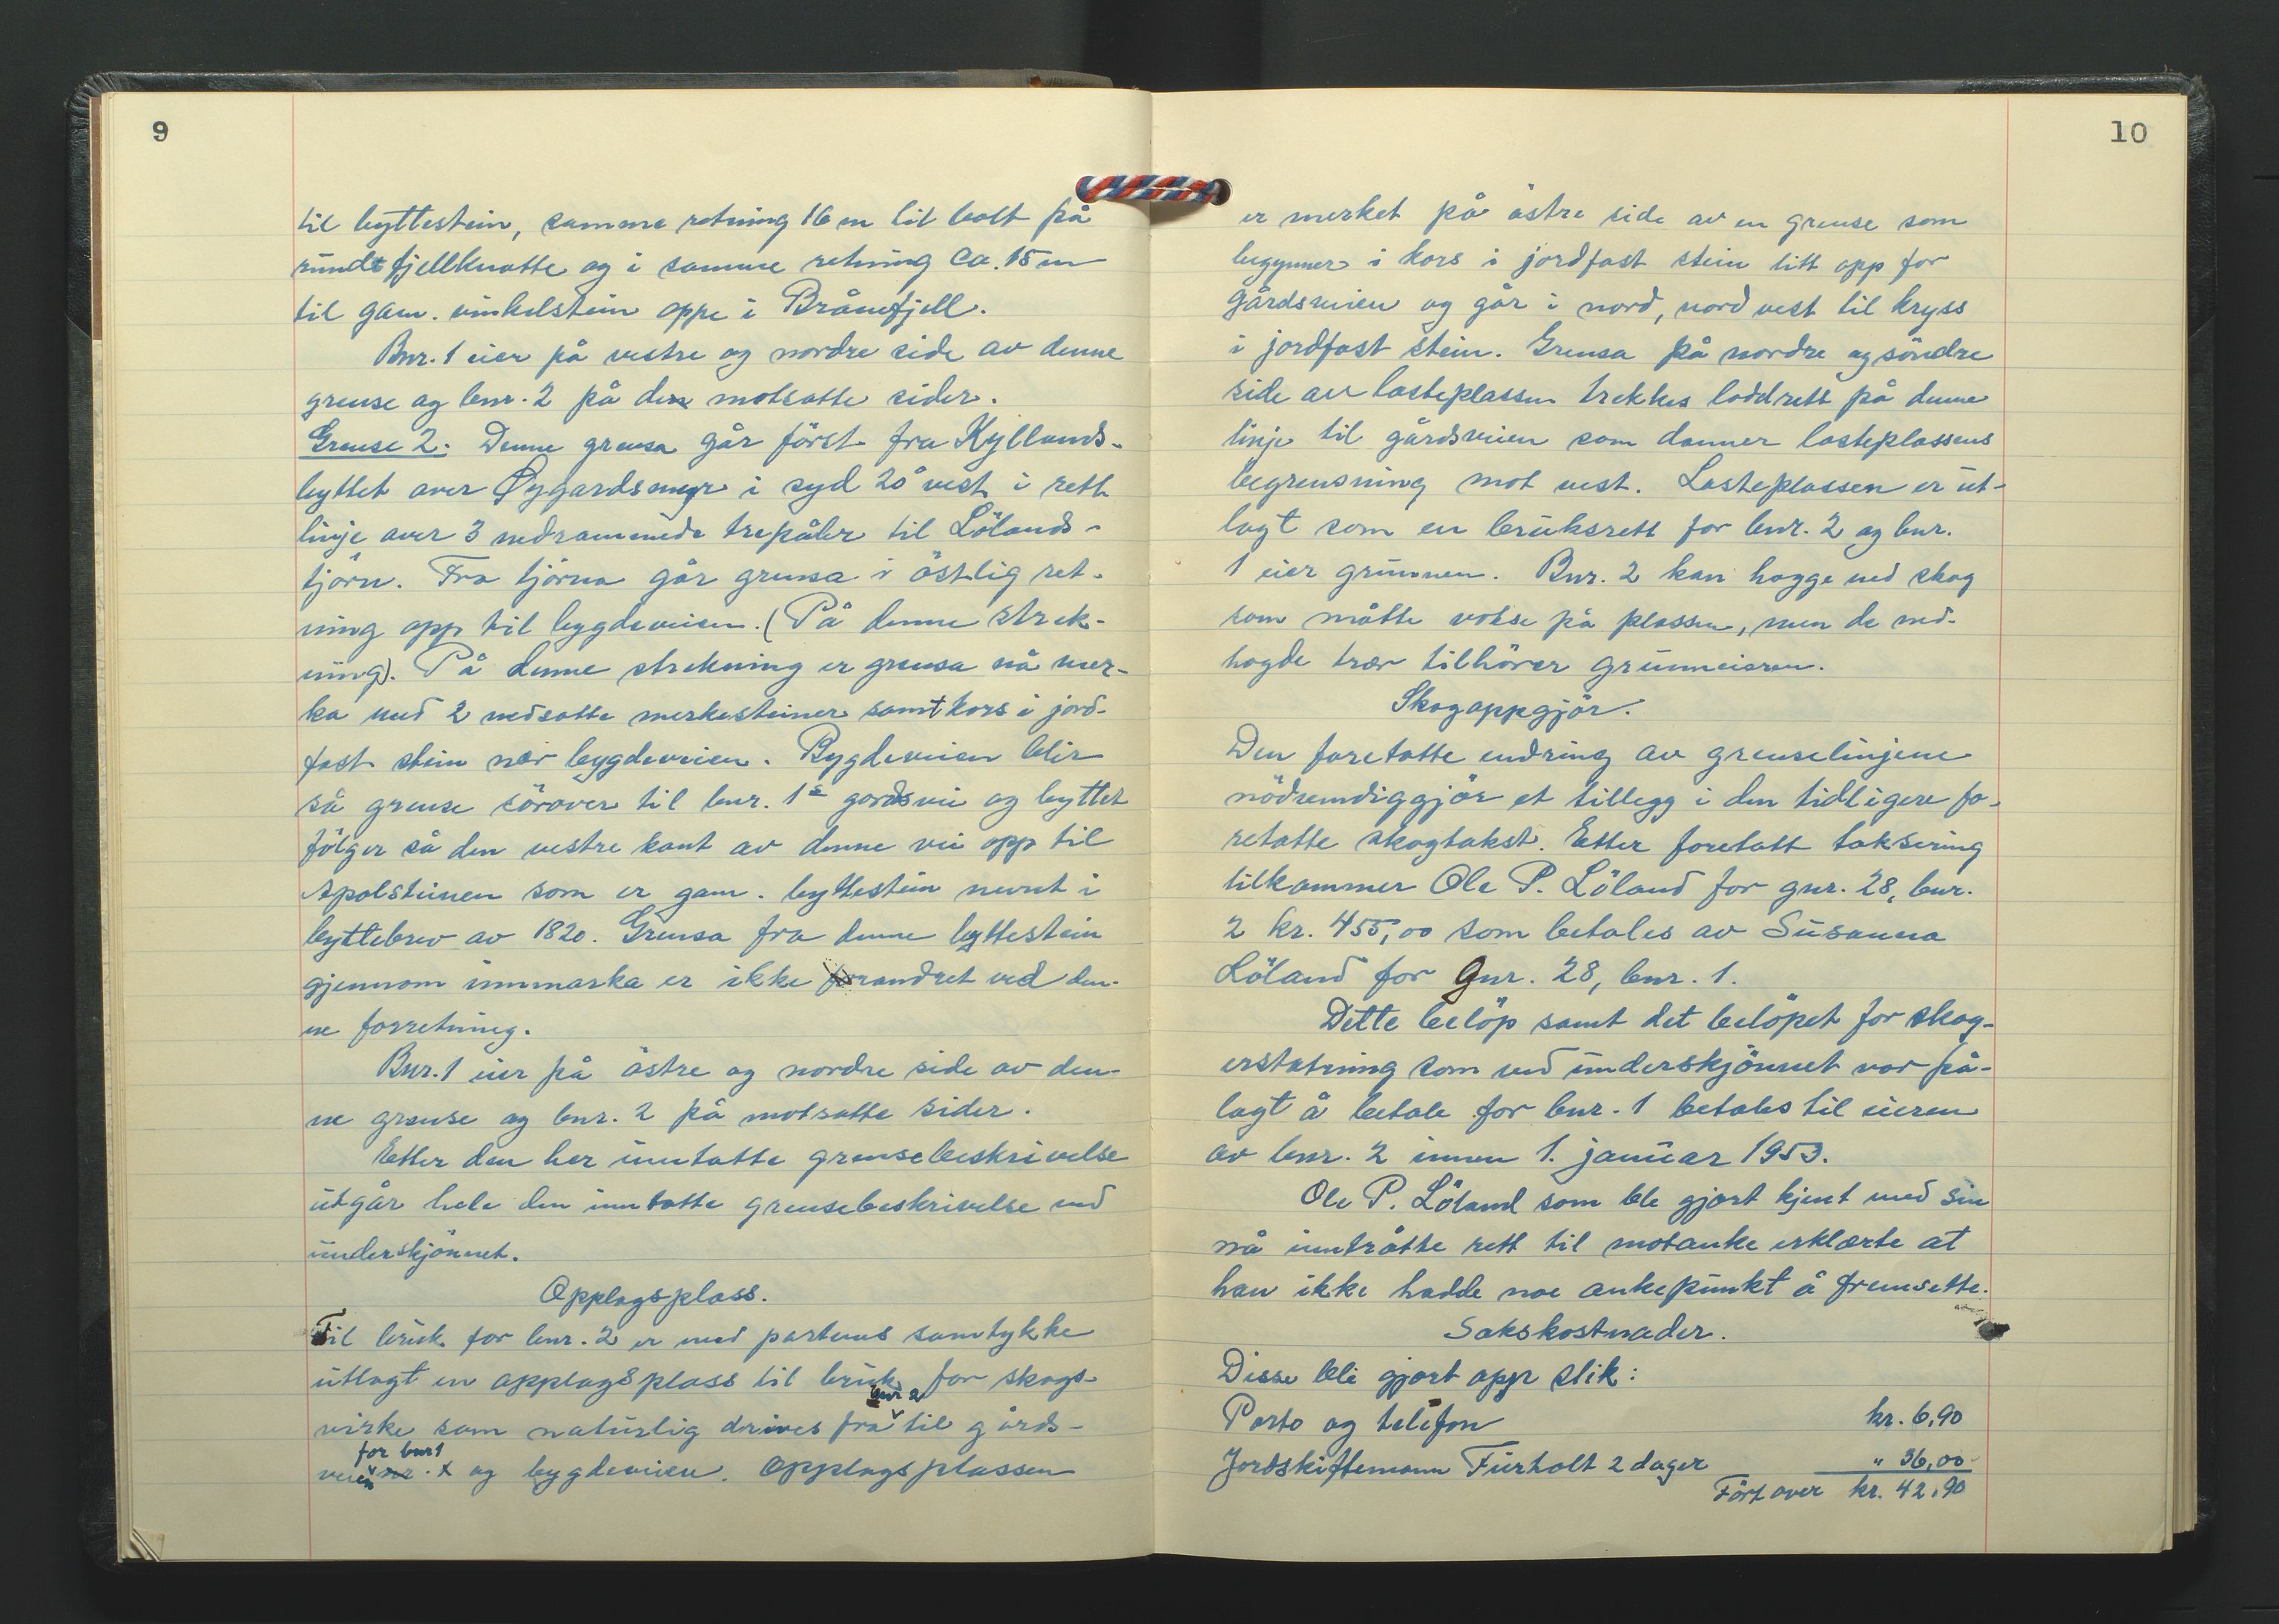 9
til byttestein, samme retning 16 m til bolt på
rundt fjellknatte og i samme retning ca. 15 m
til gam. vinkelstein oppe i Brånefjell.
Bnr. 1 eier på vestre og nordre side av denne
grense og bnr. 2 på den motsatte sider.
Grense 2. Denne grensa går först fra Kyllands-
byttet over Øygardsmyr i syd 20° vest i rett
linje over 3 nedrammede trepåler til Lölands-
tjörn. Fra tjörna går grensa i östlig ret-
ning opp til bygdeveien. (På denne strek-
ning). På denne strekning er grensa nå mer-
ka med 2 nedsatte merkesteiner samt kors i jord-
fast stein nær bygdeveien. Bygdeveien blir
så grense sörover til bnr. 1s gardsvei og byttet
fölger så den vestre kant av denne vei opp til
Apolsteinen som er gam. byttestein nevnt i
byttebrev av 1820. Grensa fra denne byttestein
gjennom innmarka er ikke forandret ved den-
ne forretning.
Bnr. 1 eier på östre og nordre side av den-
ne grense og bnr. 2 på motsatte sider.
Etter den her inntatte grensebeskrivelse
utgår hele den inntatte grensebeskrivelse ved
underskjönnet.
Opplagsplass.
Til bruk for bnr. 2 er med partenes samtykke
utlagt en opplagsplass til bruk for skogs-
bnr 2
virke som naturlig drives fra til gårds-
for bnr 1
veien og bygdeveien. Opplagsplassen
10
er merket på östre side av en grense som
begynner i kors i jordfast stein litt opp for
gårdsveien og går i nord, nord vest til kryss
i jordfast stein. Grensa på nordre og söndre
side av lasteplassen trekkes loddrett på denne
linje til gårdsveien som danner lasteplassens
begrensning mot vest. Lasteplassen er ut-
lagt som en bruksrett for bnr. 2 og bnr.
1 eier grunnen. Bnr. 2 kan hogge ned skog
som måtte vokse på plassen, men de ned-
hogde trær tilhörer grunneieren.
Skogoppgjör.
Den foretatte endring av grenselinjene
nödvendiggjör et tillegg i den tidligere fo-
retatte skogtakst. Etter foretatt taksering
tilkommer Ole P. Löland for gnr. 28, bnr.
2 kr. 455,00 som betales av Susanna
Löland for gnr. 28, bnr. 1.
Dette belöp samt det belöpet for skog-
erstatning som ved underskjönnet var på-
lagt å betale for bnr. 1 betales til eieren
av bnr. 2 innen 1. januar 1953.
Ole P. Löland som ble gjort kjent med sin
nå inntråtte rett til motanke erklærte at
han ikke hadde noe ankepunkt å fremsette.
Sakskostnader.
Disse ble gjort opp slik:
Porto og telefon kr. 6,90
Jordskiftemann Furholt 2 dager " 36,00
Fört over kr. 42,90